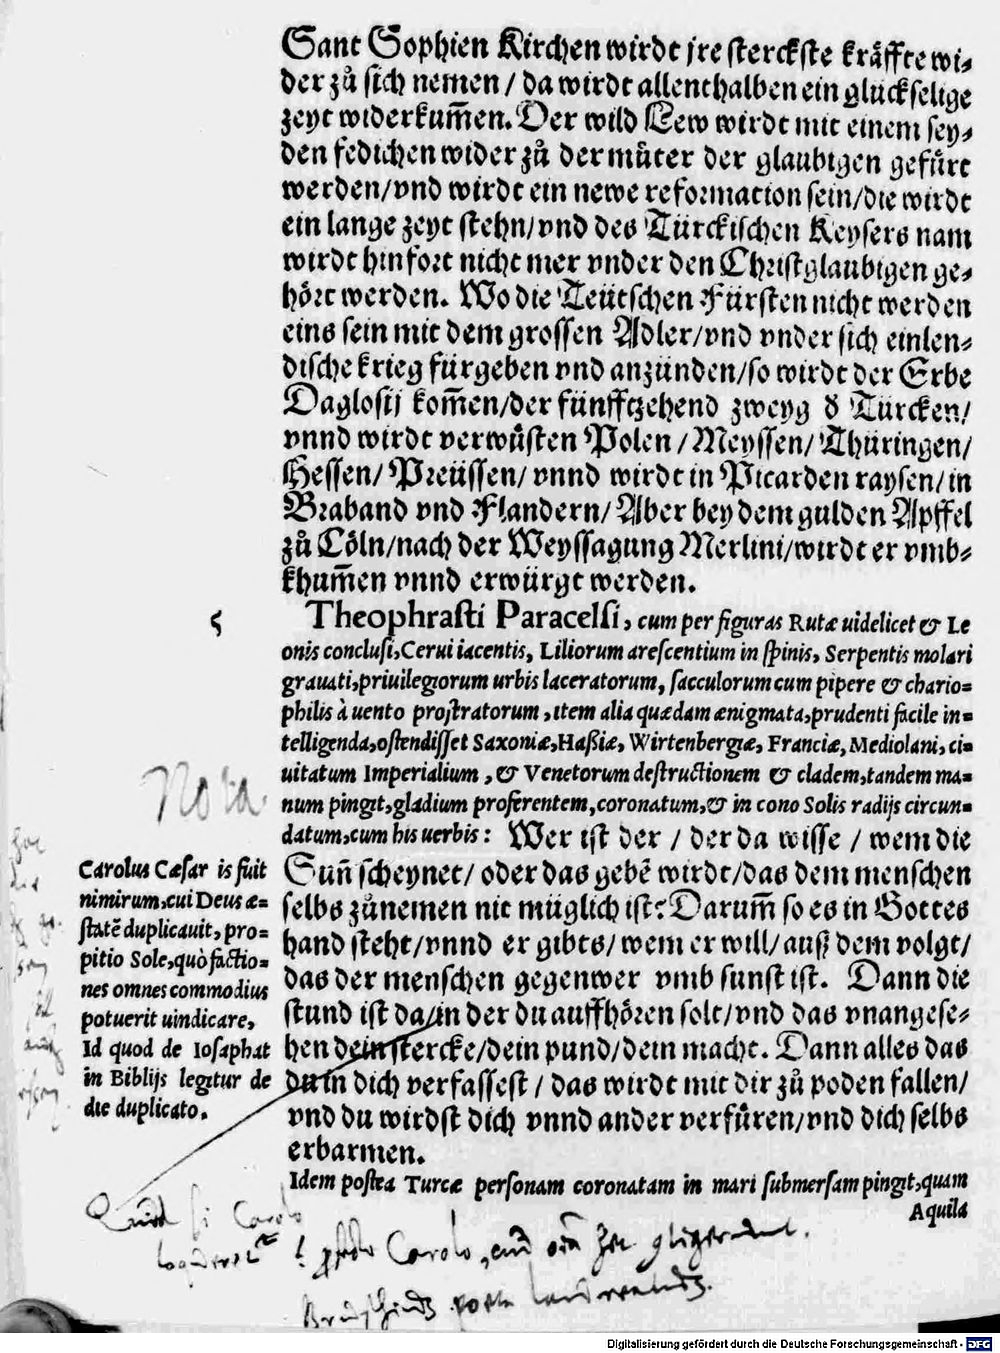 Sant Sophien Kirchen wirdt jre sterckste kräffte wi-
der zů sich nemen / da wirdt allenthalben ein glückselige
zeyt widerkum̃en. Der wild Lew wirdt mit einem sey-
den fedichen wider zů der můter der glaubigen gefůrt
werden/vnd wirdt ein newe reformation sein/die wirdt
ein lange zeyt stehn/vnd des Türckischen Keysers nam
wirdt hinfort nicht mer vnder den Christglaubigen ge-
hört werden. Wo die Teütschen Fürsten nicht werden
eins sein mit dem grossen Adler/vnd vnder sich einlen-
dische krieg fürgeben vnd anzünden/so wirdt der Erbe
Daglosij kom̃en/der fünfftzehend zweyg d Türcken/
vnnd wirdt verwůsten Polen / Meyssen/ Thüringen/
Hessen/ Preüssen/ vnnd wirdt in Picarden raysen/ in
Braband vnd Flandern/ Aber bey dem gulden Apffel
zů Cöln/nach der Weyssagung Merlini/wirdt er vmb-
khum̃en vnnd erwürgt werden.
Theophrasti Paracelsi, cum per figuras Rutæ uidelicet & Le
onis conclusi, Cerui iacentis, Liliorum arescentium in spinis, Serpentis molari
grauati, priuilegiorum urbis laceratorum, sacculorum cum pipere & chario-
philis à uento prostratorum, item alia quædam ænigmata, prudenti facile in-
telligenda, ostendisset Saxoniæ, Haßiæ, Wirtenbergiæ, Franciæ, Mediolani, ci-
uitatum Imperialium, & Venetorum destructionem & cladem, tandem ma-
num pingit, gladium proferentem, coronatum, & in cono Solis radijs circun-
datum, cum his uerbis: Wer ist der / der da wisse / wem die
Suñ scheynet/ oder das gebẽ wirdt/das dem menschen
selbs zůnemen nit müglich ist: Darum̃ so es in Gottes
hand steht/vnnd er gibts/ wem er will/ auß dem volgt/
das der menschen gegenwer vmb sunst ist. Dann die
stund ist da/in der du auffhören solt/vnd das vnangese-
hen dein stercke/dein pund/dein macht. Dann alles das
du in dich verfassest / das wirdt mit dir zů poden fallen/
vnd du wirdst dich vnnd ander verfůren/vnd dich selbs
erbarmen.
Idem postea Turcæ personam coronatam in mari submersam pingit, quam
Aquila
Nota
Carolus Cæsar is fuit
nimirum, cui Deus æ-
statẽ duplicauit, pro-
pitio Sole, quò factio-
nes omnes commodius
potuerit uindicare,
Id quod de Iosaphat
in Biblijs legitur de
die duplicato.
Carolo
Carolo
Digitalisierung gefördert durch die Deutsche Forschungsgemeinschaft - DFG